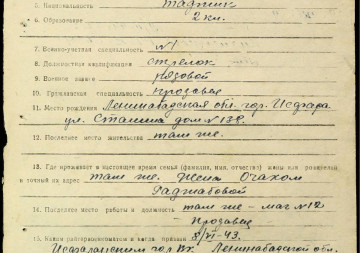 5. Национальность таджик
6. Образование 2 кл.
7. Военно-учетная специальность № 1
8. Должностная квалификация стрелок
9. Военное звание рядовой
10. Гражданская специальность продавец
11. Место рождения Ленинабадская обл. гор. Исфара
ул. Сталина дом № 138.
12. Последнее место жительства там же.
13. Где проживает в настоящее время семья (фамилия, имя, отчество) жены или родителей
и точный их адрес там же. Жена Очахом
Раджабовой
14. Последнее место работы и должность там же - маг № 12
Продавец
15. Каким райгорвоенкоматом и когда призван 8/VI-43.
Исфаринским гор ВК. Ленинабадской обл.